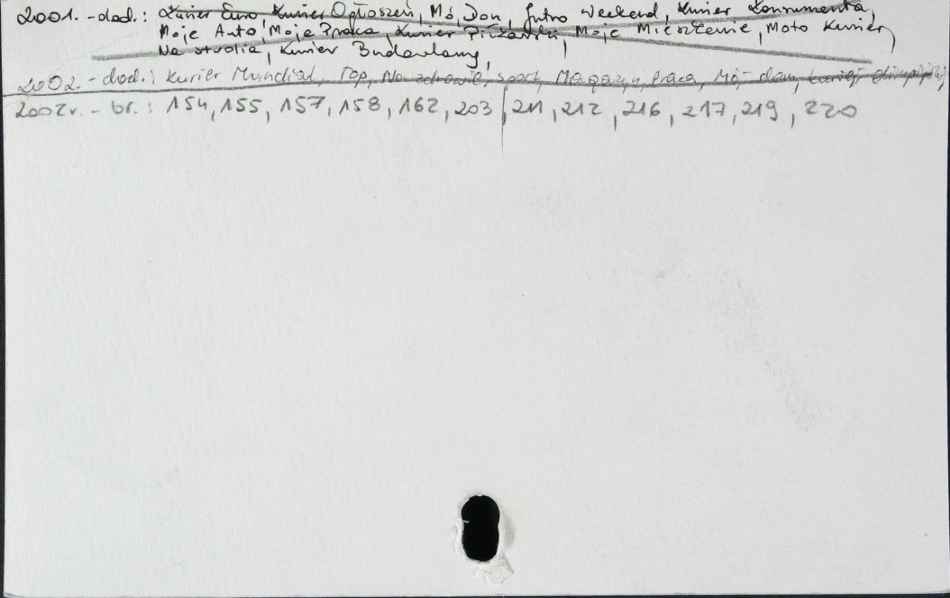 2001. - dod.: Kurier Euro, Kurier Ogłoszeń, Mój Dom, Jutro Weekend, Kurier Konsumenta,
Moje Auto, Moja Praca, Kurier Piłkarski, Moje Mieszkanie, Moto Kurier,
Na studia, Kurier Budowlany,
2002. - dod.: Kurier Mundial, Top, Na zdrowie, sport, Magazyn, Praca, Mój dom, kurier olimpijski
2002r. - br.: 154, 155, 157, 158, 162, 203, 211, 212, 216, 217, 219, 220